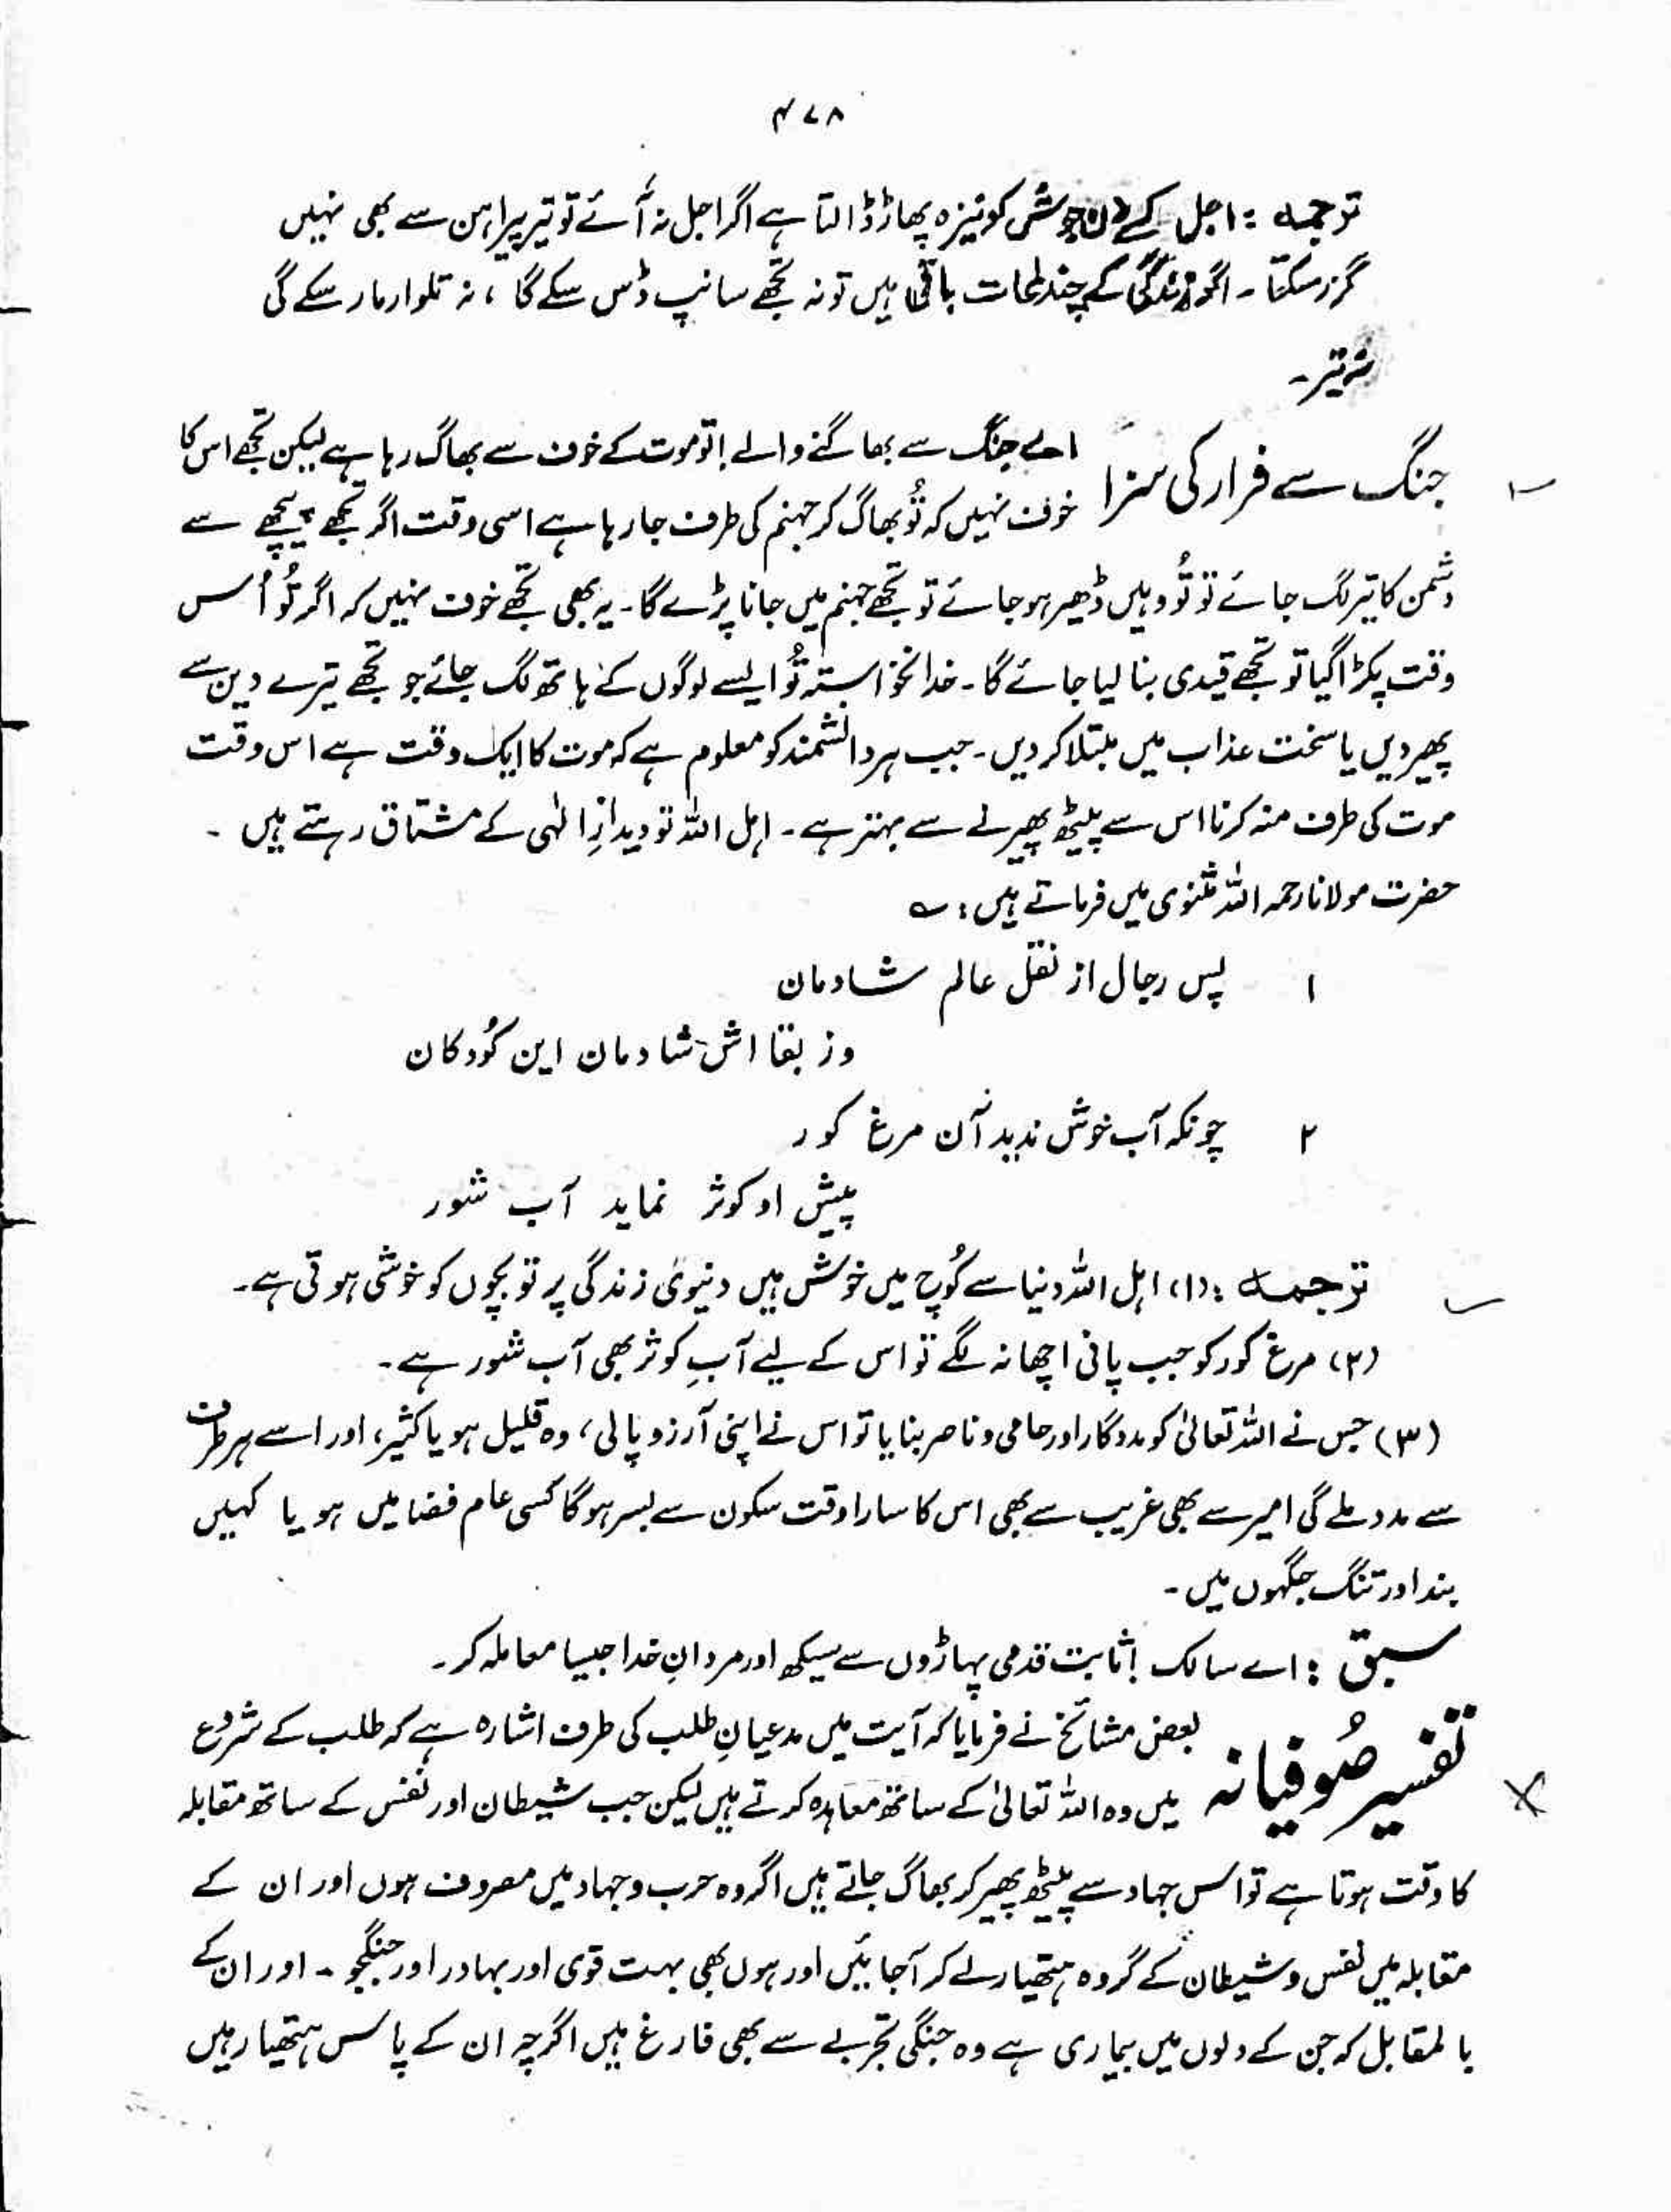 ۴۷۸
ترجمہ : اجل کے دن جوشن کو نیزہ پھاڑ ڈالتا ہے اگر اجل نہ آئے تو تیر پیراہن سے بھی نہیں
گزر سکتا ۔ اگر زندگی کے چند لمحات باقی ہیں تو نہ تجھے سانپ ڈس سکے گا ، نہ تلوار مار سکے گی
نہ تیر ۔
جنگ سے فرار کی سزا
اے جنگ سے بھاگنے والے ! تو موت کے خوف سے بھاگ رہا ہے لیکن تجھے اس کا
خوف نہیں کہ تُو بھاگ کر جہنم کی طرف جا رہا ہے اسی وقت اگر تجھے پیچھے سے
دشمن کا تیر لگ جائے تو تُو وہیں ڈھیر ہو جائے تو تجھے جہنم میں جانا پڑے گا ۔ یہ بھی تجھے خوف نہیں کہ اگر تُو اُس
وقت پکڑا گیا تو تجھے قیدی بنا لیا جائے گا ۔ خدانخواستہ تُو ایسے لوگوں کے ہاتھ لگ جائے جو تجھے تیرے دین سے
پھیر دیں یا سخت عذاب میں مبتلا کر دیں ۔ جب ہر دانشمند کو معلوم ہے کہ موت کا ایک وقت ہے اس وقت
موت کی طرف منہ کرنا اس سے پیٹھ پھیرنے سے بہتر ہے ۔ اہل اللہ تو دیدارِ الٰہی کے مشتاق رہتے ہیں ۔
حضرت مولانا رحمہ اللہ مثنوی میں فرماتے ہیں : ؎
۱ پس رجال از نقل عالم شادمان
وز بقا اش شادمان این کُودکان
۲ چونکہ آب خوش ندید آن مرغ کور
پیش او کوثر نماید آب شور
ترجمہ : (۱) اہل اللہ دنیا سے کُوچ میں خوش ہیں دنیوی زندگی پر تو بچوں کو خوشی ہوتی ہے ۔
(۲) مرغ کور کو جب پانی اچھا نہ لگے تو اس کے لیے آبِ کوثر بھی آب شور ہے ۔
(۳) جس نے اللہ تعالیٰ کو مددگار اور حامی و ناصر بنایا تو اس نے اپنی آرزو پالی ، وہ قلیل ہو یا کثیر ، اور اسے ہر طرف
سے مدد ملے گی امیر سے بھی غریب سے بھی اس کا سارا وقت سکون سے بسر ہوگا کسی عام فضا میں ہو یا کہیں
بند اور تنگ جگہوں میں ۔
سبق : اے سالک ! ثابت قدمی پہاڑوں سے سیکھ اور مردانِ خدا جیسا معاملہ کر ۔
تفسیر صُوفیانہ
بعض مشائخ نے فرمایا کہ آیت میں مدعیانِ طلب کی طرف اشارہ ہے کہ طلب کے شروع
میں وہ اللہ تعالیٰ کے ساتھ معاہدہ کرتے ہیں لیکن جب شیطان اور نفس کے ساتھ مقابلہ
کا وقت ہوتا ہے تو اس جہاد سے پیٹھ پھیر کر بھاگ جاتے ہیں اگر وہ حرب و جہاد میں مصروف ہوں اور ان کے
مقابلہ میں نفس و شیطان کے گروہ ہتھیار لے کر آجائیں اور ہوں بھی بہت قوی اور بہادر اور جنگجو ۔ اور ان کے
بالمقابل کہ جن کے دلوں میں بیماری ہے وہ جنگی تجربے سے بھی فارغ ہیں اگرچہ ان کے پاس ہتھیار ہیں